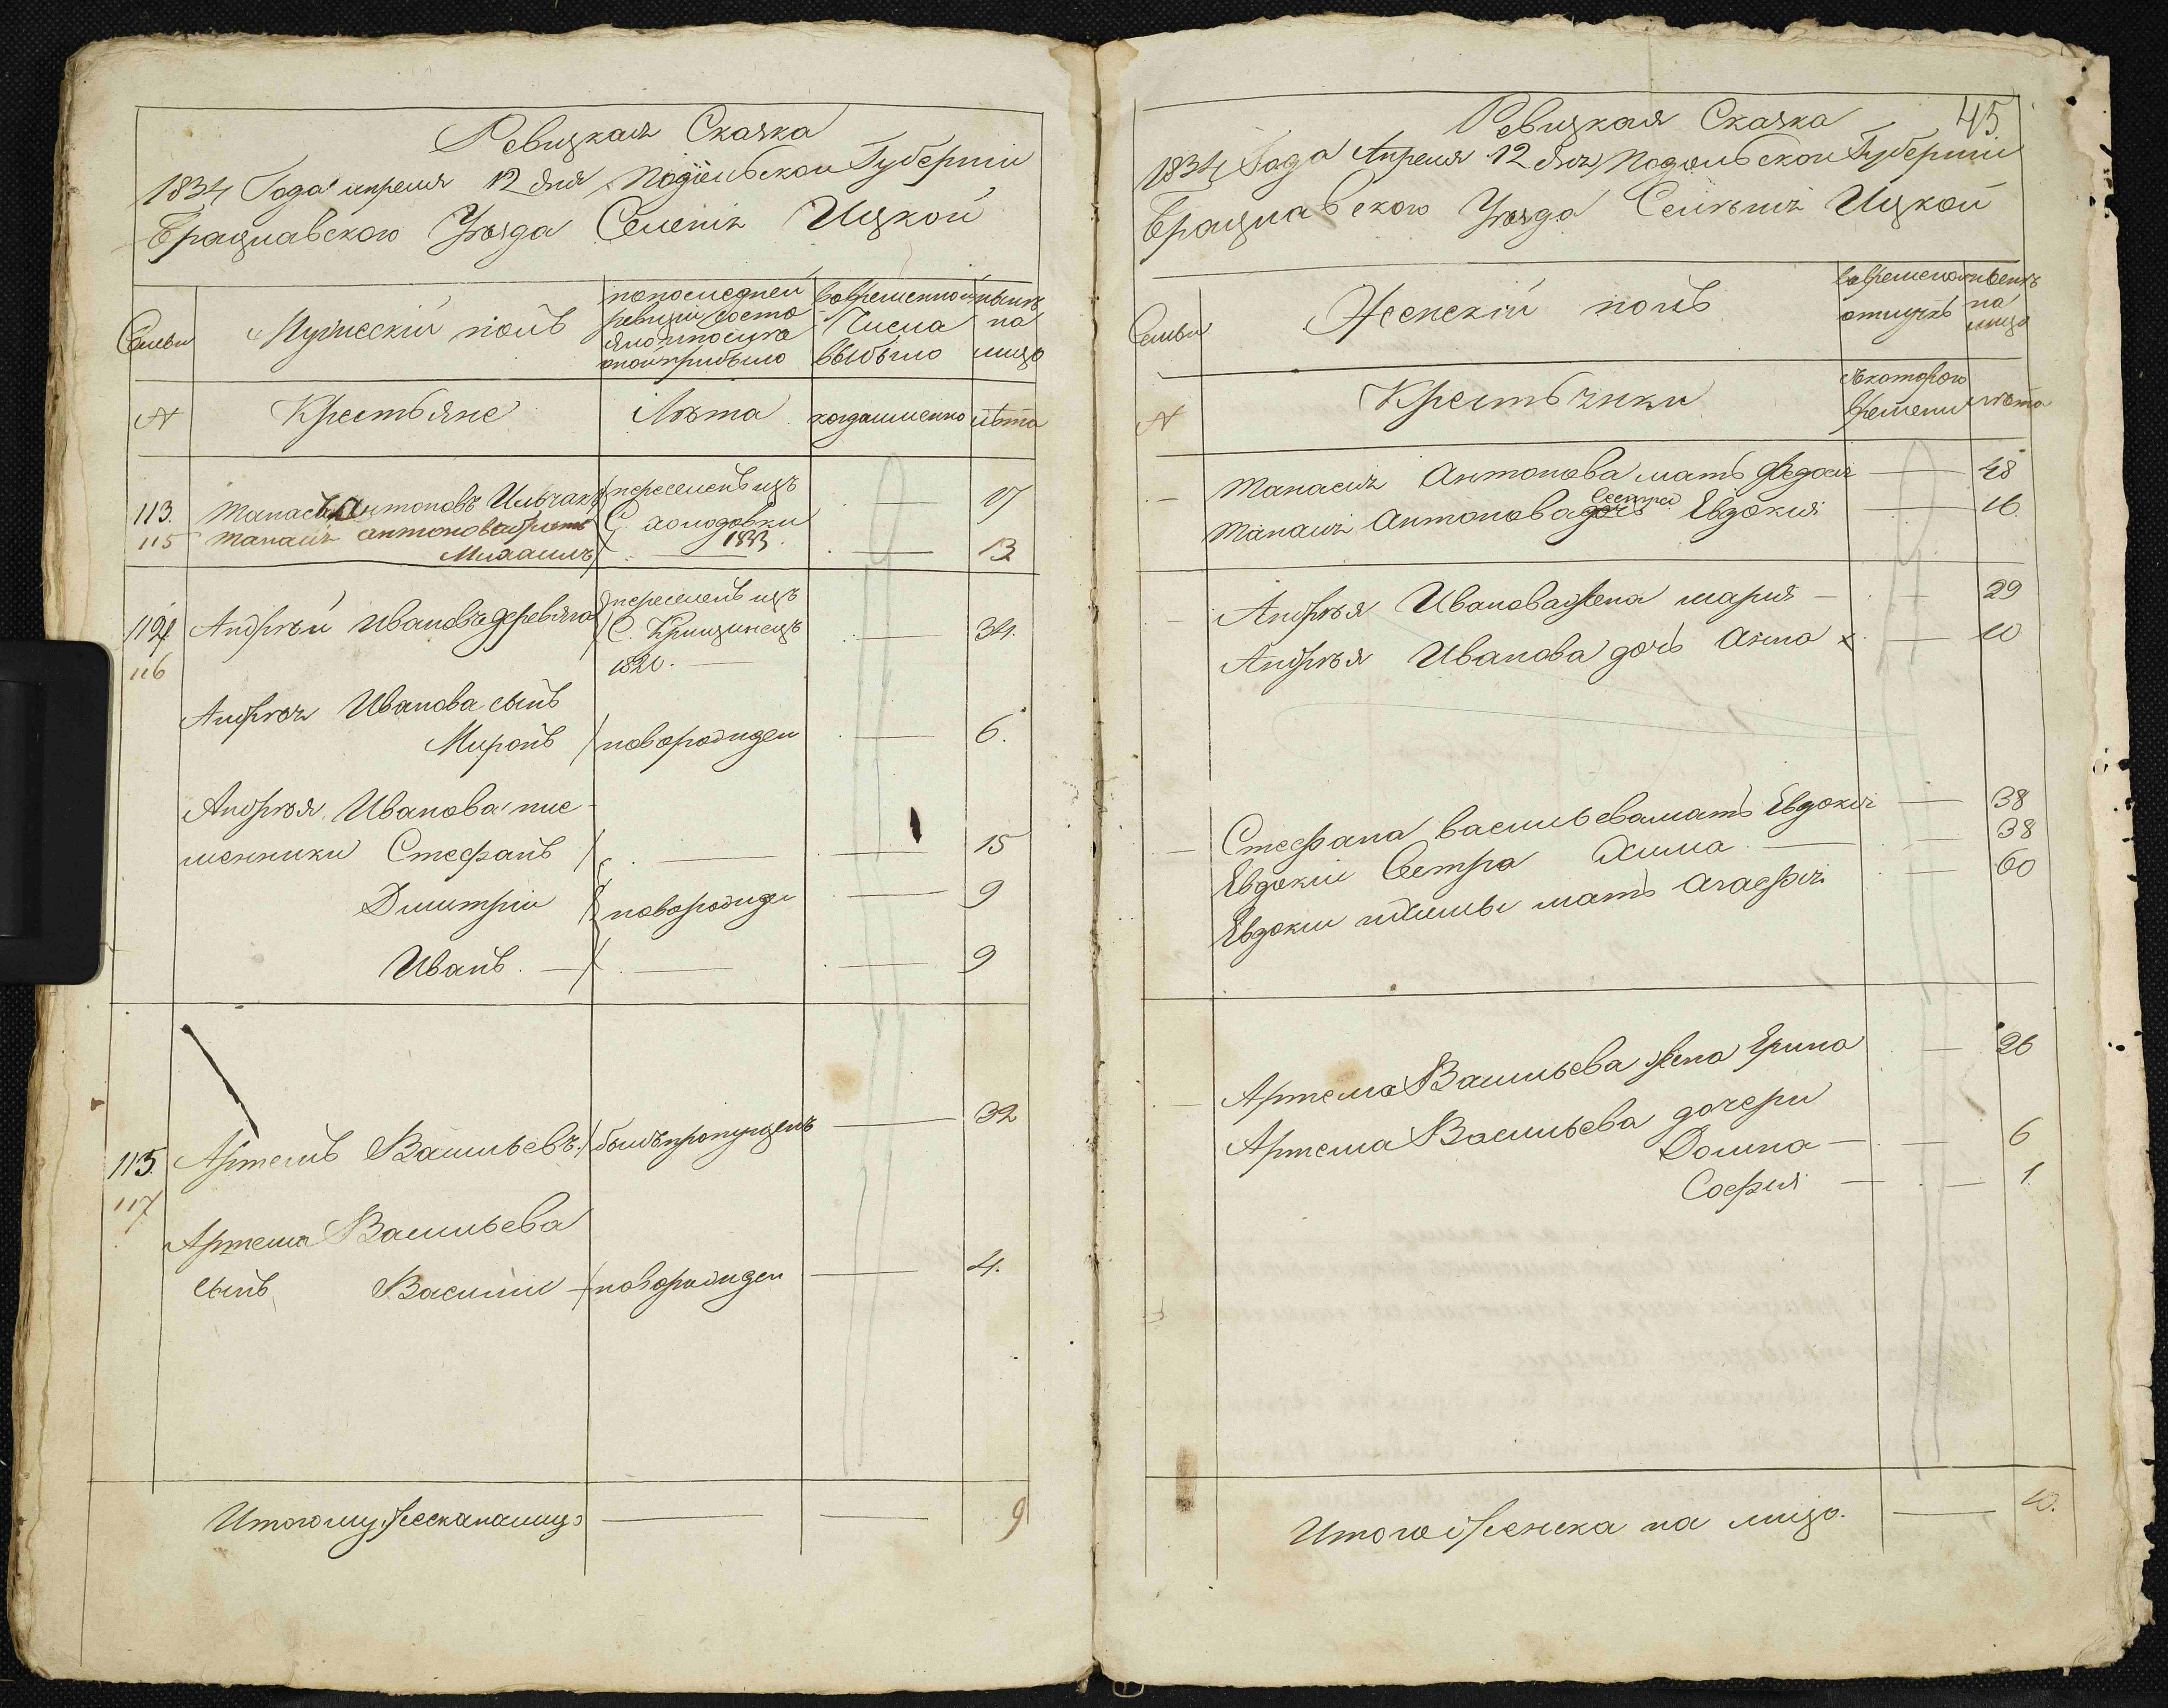 Ревизкая Сказка
1834 Года апреля 12 дня Подольской Губернiи
Брацлавского Уѣзда Селенiя Ицкой
Семьи
Мужескiй полъ
попоследней
ревизiи состо
яло ипосле
той прибыло
Изтого
Числа
выбыло
нынѣ
на
лицо
№
Крестьяне
Лѣта
когдаименно
лѣта
113.
115
Манасiй Антоновъ Ильчакъ
переселенъ изъ
17
Манасiя Антонова братъ
С. Холодовки
Михаилъ
1833.
13
114
116
Андрѣй Ивановъ деревяга
переселенъ изъ
С. Крищинецъ
1820.
34.
Андрѣя Иванова сынъ
Миронъ
новорожден
6.
Андрѣя Иванова пле-
менники Стефанъ
15
Димитрiй
новорожден
9
Иванъ.
9
115.
117
Артемъ Васильевъ.
былъ пропущенъ
32
Артема Васильева
сынъ Василiй
новорожден
4.
Итого мужеска налицо
9
45.
Ревизкая Сказка
1834 Года Апреля 12 дня Подольской Губернiи
Брацлавского Уѣзда Селенiя Ицкой
Семьи
Женскiй полъ
вовременой
отлучкѣ
нынѣ
на
лицо
№
Крестьянки
съкоторого
времени
лѣта
Манасiя Антонова мать Федосiя
48
Манасiя Антонова дочь Сестра Евдокiя
16.
Андрѣя Иванова жена марiя
29
Андрѣя Иванова дочь Анна
10
Стефана васильева мать Евдокiя
38
Евдокiи Сестра Химма
38
Евдокiи иХиммы мать Агафiя
60
Артема Васильева жена Ерина
26
Артема Васильева дочери
Домна
6
Софiя
1.
Итого женска на лицо.
10.